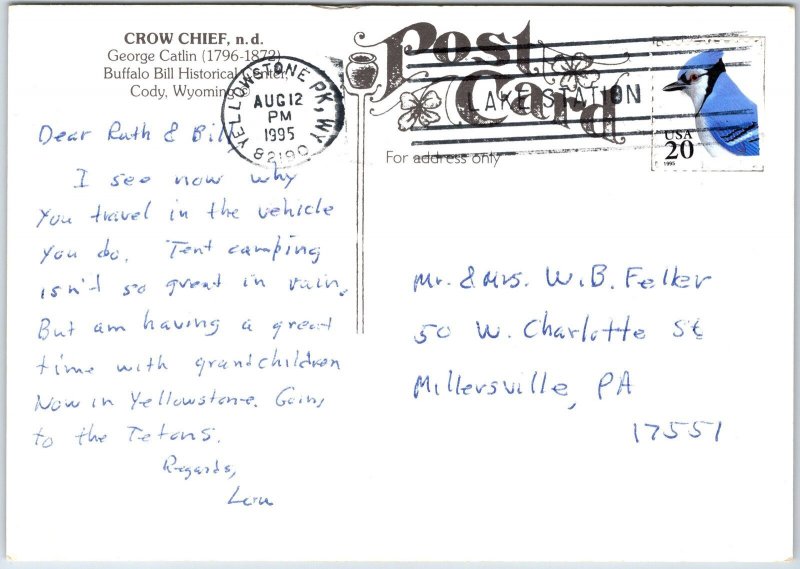 CROW CHIEF, n.d.
George Catlin (1796-1872)
Buffalo Bill Historical Center,
Cody, Wyoming
Post
Card
YELLOWSTONE PK, WY
AUG 12
PM
1995
82190
LAKE STATION
USA
20
1995
For address only
Dear Ruth & Bill
I see now why
you travel in the vehicle
you do. Tent camping
isn't so great in rain.
But am having a great
time with grandchildren
Now in Yellowstone. Going
to the Tetons.
Regards,
Lou
Mr. & Mrs. W.B. Felker
50 W. Charlotte St
Millersville, PA
17551